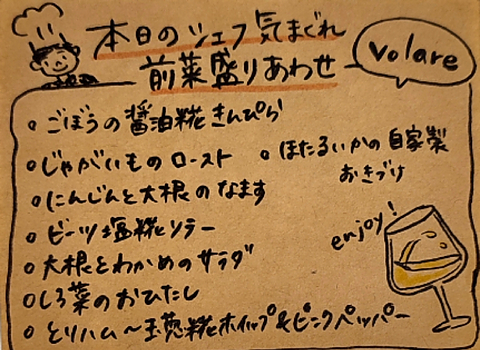 本日のシェフ気まぐれ
前菜盛りあわせ
Volare
○ ごぼうの醤油糀きんぴら
○ じゃがいものロースト
○ ほたるいかの自家製
おきづけ
○ にんじんと大根のなます
○ ビーツ塩糀ソテー
○ 大根とわかめのサラダ
○ しろ菜のおひたし
○ とりハム〜玉葱糀ホイップ&ピンクペッパー
enjoy!